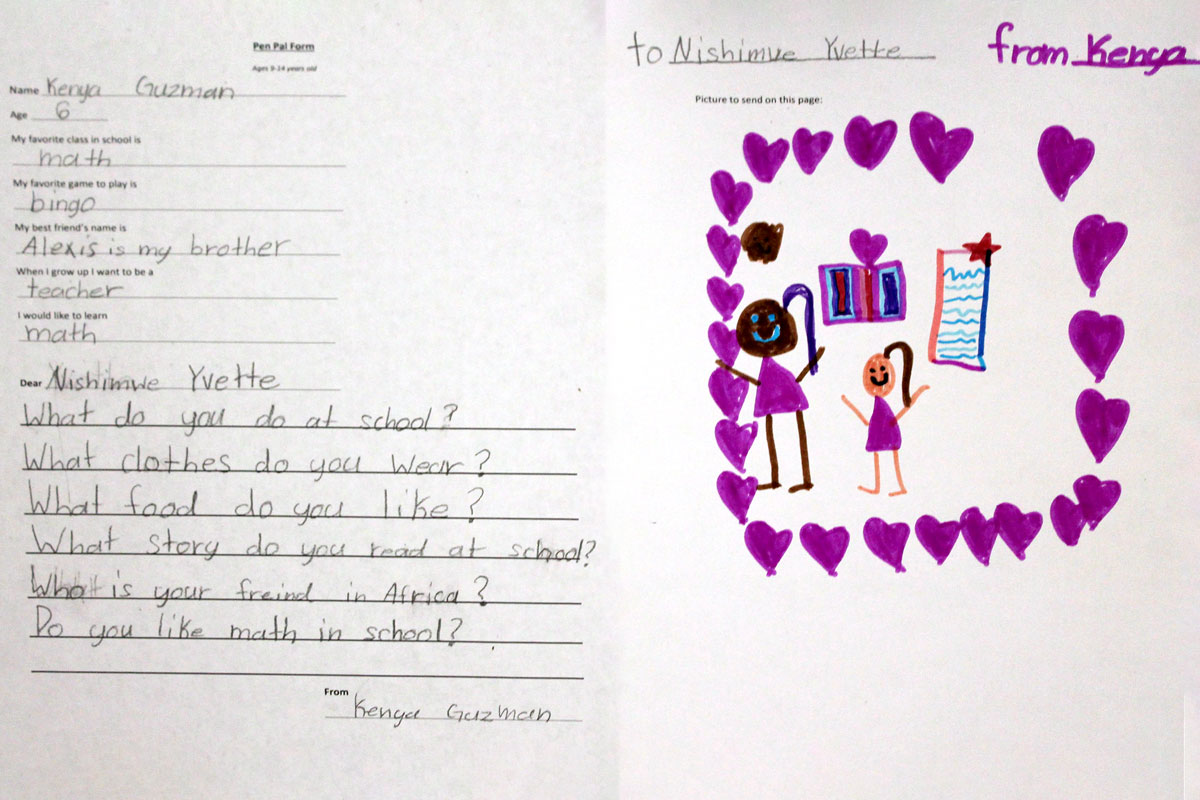 Pen Pal Form
Ages 9-14 years old
Name Kenya Guzman
Age 6
My favorite class in school is
math
My favorite game to play is
bingo
My best friend's name is
Alexis is my brother
When I grow up I want to be a
teacher
I would like to learn
math
Dear Nishimwe Yvette
What do you do at school?
What clothes do you wear?
What food do you like?
What story do you read at school?
Who is your freind in Africa?
Do you like math in school?
From
Kenya Guzman
to Nishimwe Yvette from Kenya
Picture to send on this page: